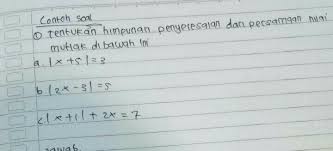 Contoh soal
① tentukan himpunan penyelesaian dari persamaan nilai
mutlak di bawah ini
a. |x + 5| = 3
b |2x - 3| = 5
c | x + 1 | + 2x = 7
Jawab